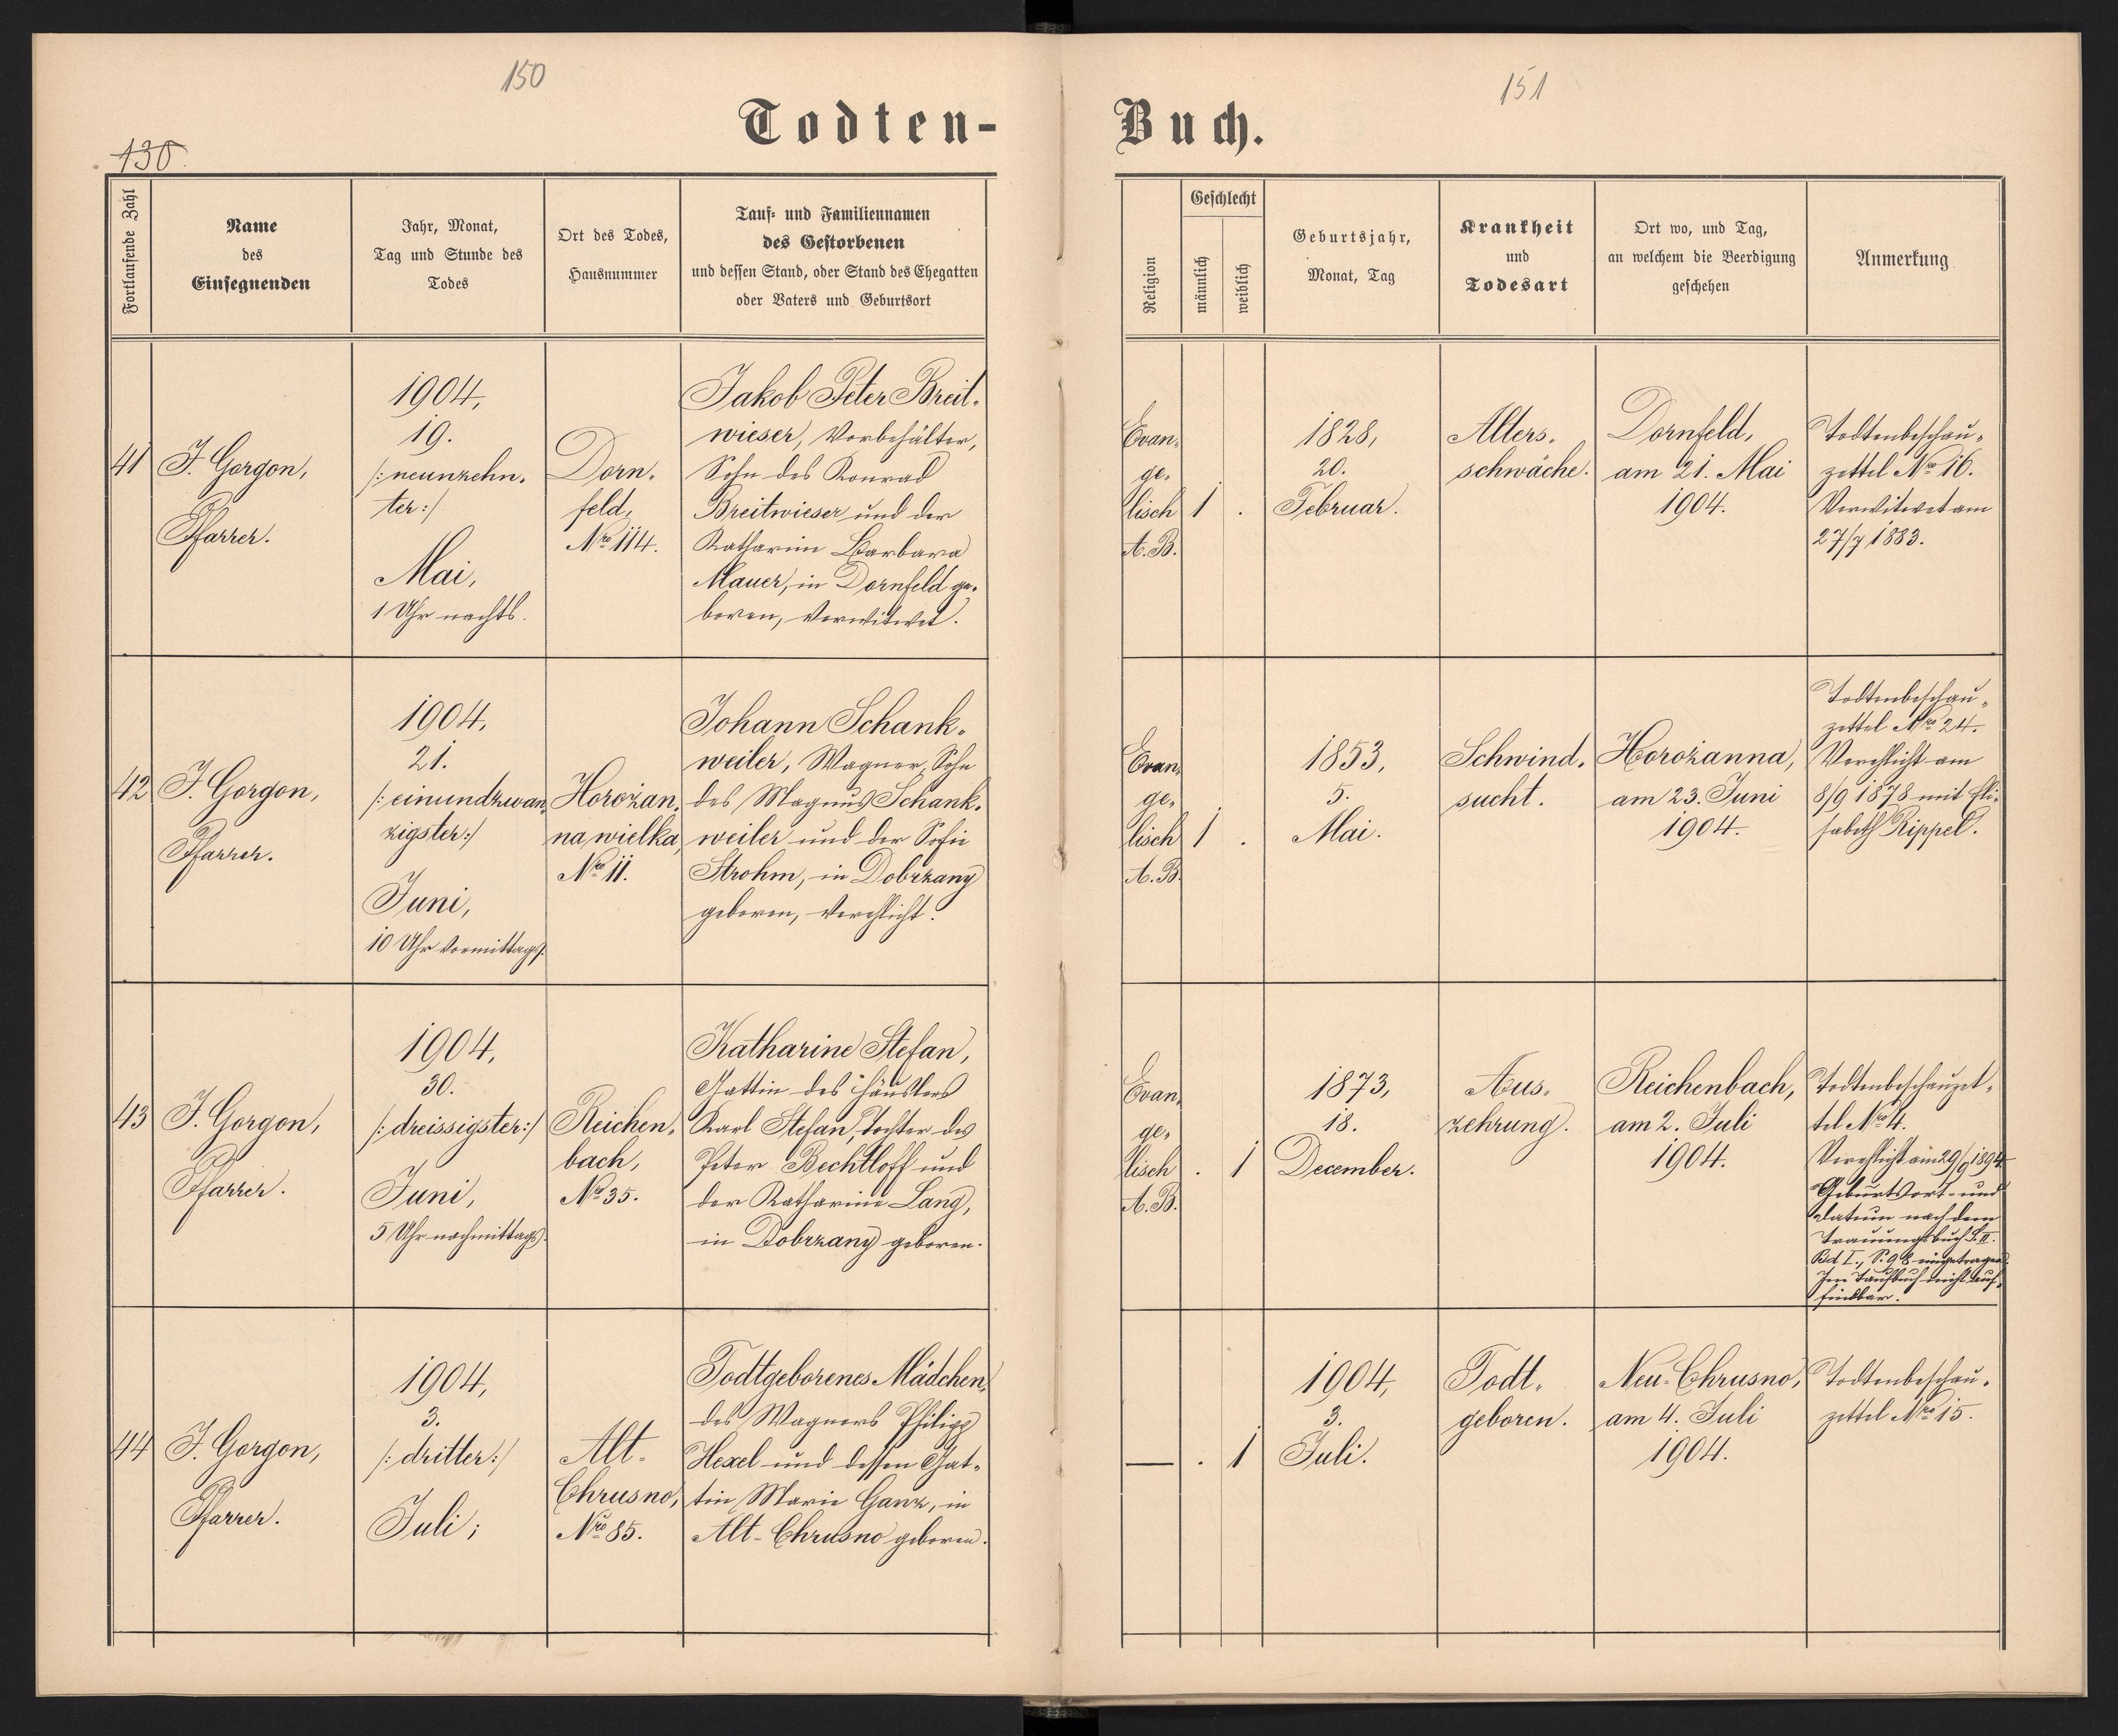 150
151
Todten-
Buch.
130.
Fortlaufende Zahl
Name
des
Einsegnenden
Jahr, Monat,
Tag und Stunde des
Todes
Ort des Todes,
Hausnummer
Tauf- und Familiennamen
des Gestorbenen
und dessen Stand, oder Stand des Ehegatten
oder Vaters und Geburtsort
Religion
Geschlecht
männlich
weiblich
Geburtsjahr,
Monat, Tag
Krankheit
und
Todesart
Ort wo, und Tag,
an welchem die Beerdigung
geschehen
Anmerkung
41
J. Gorgon,
Pfarrer.
1904,
19.
/:neunzehn-
ter:/
Mai,
1 Uhr nachts.
Dorn-
feld,
Nro 114.
Jakob Peter Breit-
wieser, Vorbehälter,
Sohn des Konrad
Breitwieser und der
Katharina Barbara
Mauer, in Dornfeld ge-
boren, verwitwet.
Evan-
ge-
lisch
A. B.
1
.
1828,
20.
Februar.
Alters-
schwäche.
Dornfeld,
am 21. Mai
1904.
Todtenbeschau-
zettel Nro 16.
Verwitwet am
27/7 1883.
42
J. Gorgon,
Pfarrer.
1904,
21.
/:einundzwan-
zigster:/
Juni,
10 Uhr vormittags.
Horożan-
na wielka,
Nro 11.
Johann Schank-
weiler, Wagner, Sohn
des Magnus Schank-
weiler und der Sofie
Strohm, in Dobrzany
geboren, verehlicht.
Evan-
ge-
lisch
A. B.
1
.
1853,
5.
Mai.
Schwind-
sucht.
Horożanna,
am 23. Juni
1904.
Todtenbeschau-
zettel Nro 24.
Verehlicht am
8/9 1878 mit Eli-
sabeth Rippel.
43
J. Gorgon,
Pfarrer.
1904,
30.
/:dreissigster:/
Juni,
5 Uhr nachmittags.
Reichen-
bach,
Nro 35.
Katharine Stefan,
Gattin des Häuslers
Karl Stefan, Tochter des
Peter Bechtloff und
der Katharine Lang,
in Dobrzany geboren.
Evan-
ge-
lisch
A. B.
.
1
1873,
18.
December.
Aus-
zehrung.
Reichenbach,
am 2. Juli
1904.
Todtenbeschauzet-
tel Nro 4.
Verehlicht am 29/9 1894
Geburtsort- und
datum nach dem
Trauungsbuch
Bd I., S. 98 eingetragen.
Im Taufbuch nicht auf-
findbar.
44
J. Gorgon,
Pfarrer.
1904,
3.
/:dritter:/
Juli;
Alt-
Chrusno,
Nro 85.
Todtgeborenes Mädchen,
des Wagners Philipp
Hexel und dessen Gat-
tin Marie Ganz, in
Alt-Chrusno geboren.
—
.
1
1904,
3.
Juli.
Todt-
geboren.
Neu-Chrusno,
am 4. Juli
1904.
Todtenbeschau-
zettel Nro 15.